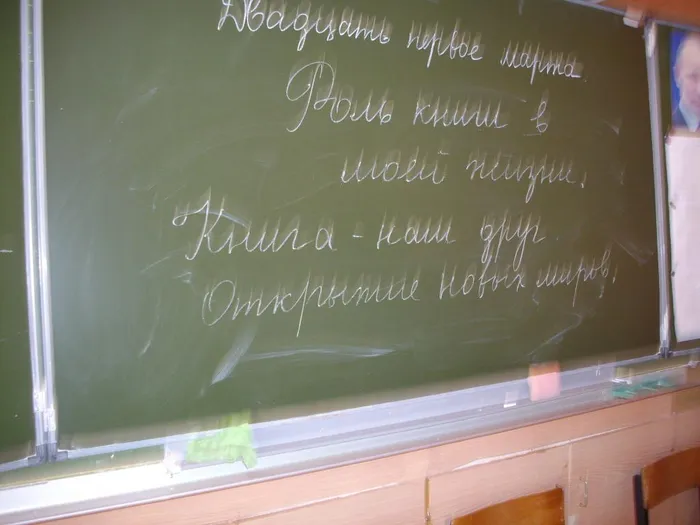 Двадцать первое марта.
Роль книги в
моей жизни.
Книга - наш друг.
Открытие новых миров.